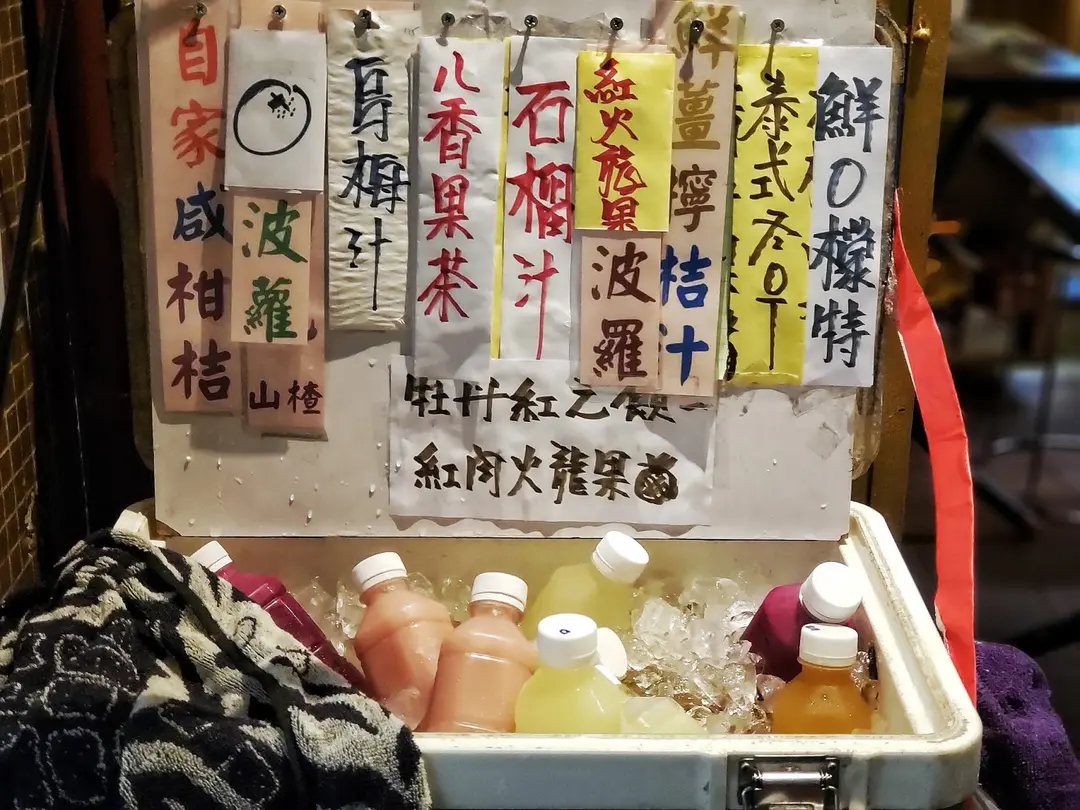 自家咸柑桔
波蘿
山楂
烏梅汁
八香果茶
石榴汁
紅火龍果
波羅
鮮薑檸桔汁
泰式冬O丅
鮮O檬特
牡丹紅之飲
紅肉火龍果